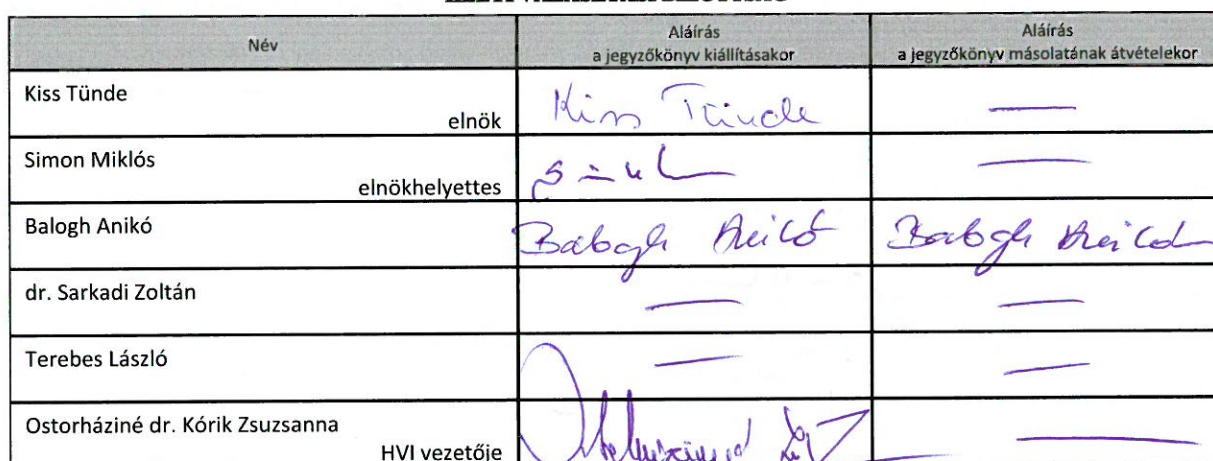 Név
Aláírás
a jegyzőkönyv kiállításakor
Aláírás
a jegyzőkönyv másolatának átvételekor
Kiss Tünde
elnök
Kiss Tünde
—
Simon Miklós
elnökhelyettes
—
Balogh Anikó
Balogh Anikó
Balogh Anikó
dr. Sarkadi Zoltán
—
—
Terebes László
—
—
Ostorháziné dr. Kórik Zsuzsanna
HVI vezetője
—